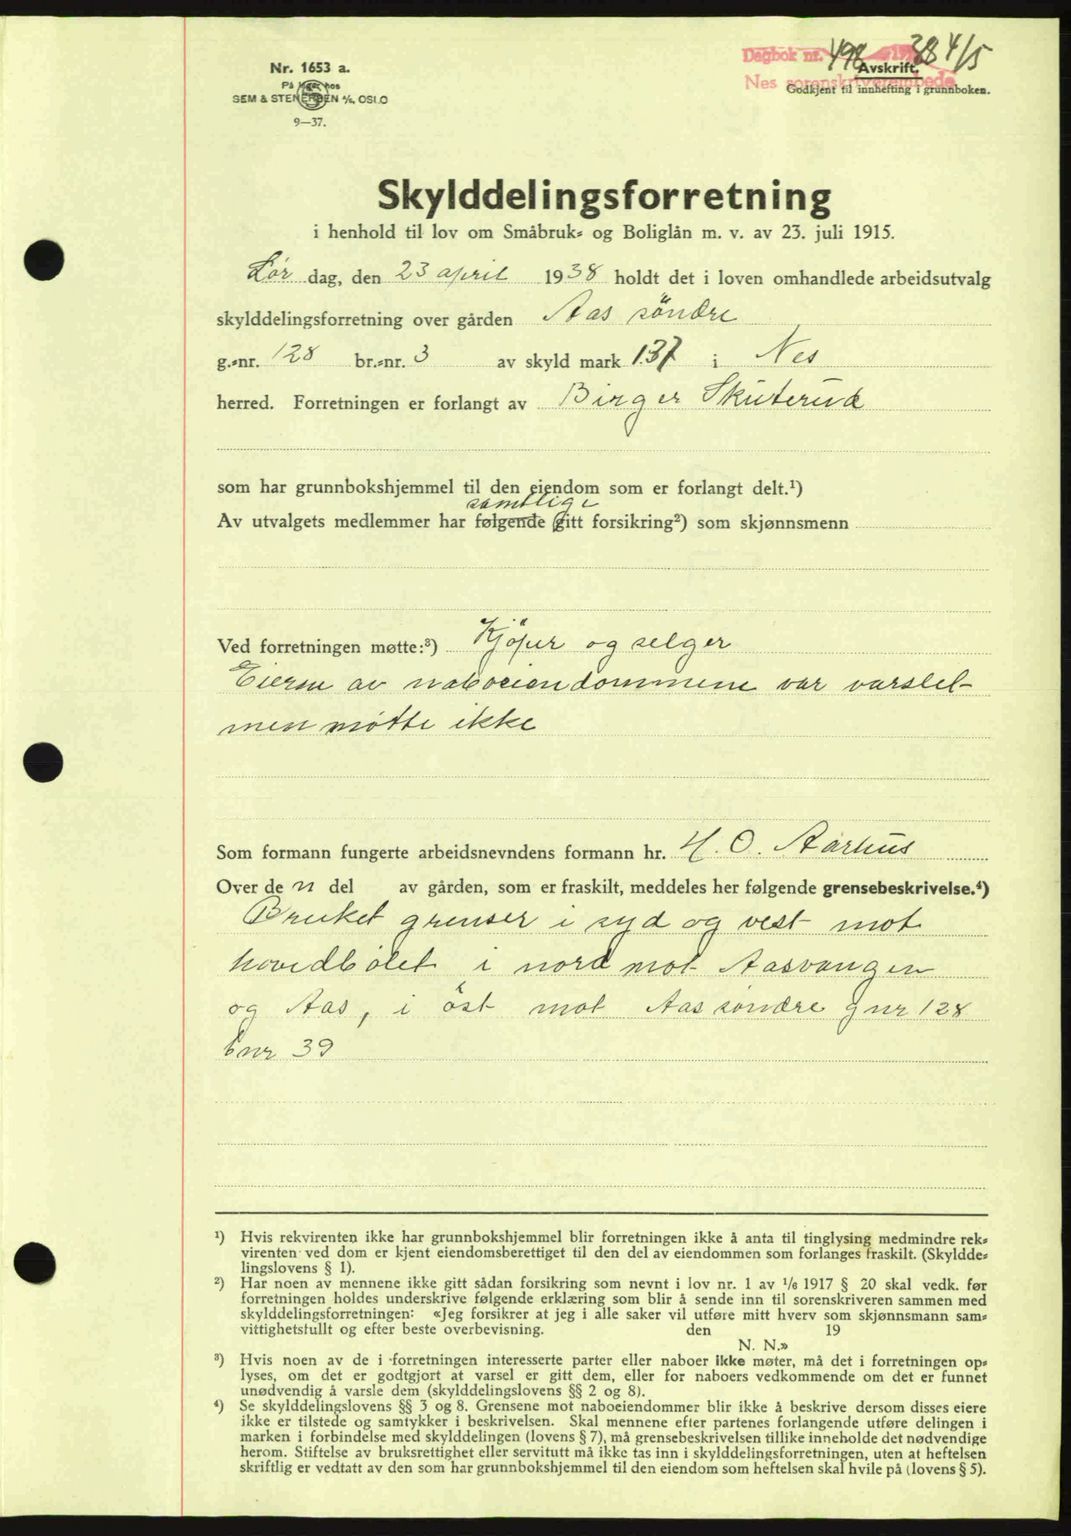 Nr. 1653 a.
På lager hos
SEM & STENERSEN A/S, OSLO
9—37.
Dagbok nr. 498 1938 4/5
Avskrift.
Nes sorenskriverembede
Godkjent til innhefting i grunnboken.
Skylddelingsforretning
i henhold til lov om Småbruk- og Boliglån m. v. av 23. juli 1915.
Lør dag, den 23 april 1938 holdt det i loven omhandlede arbeidsutvalg
skylddelingsforretning over gården Aas söndre
g.-nr. 128 br.-nr. 3 av skyld mark 1.37 i Nes
herred. Forretningen er forlangt av Birger Skuterud
som har grunnbokshjemmel til den eiendom som er forlangt delt.¹)
samtlige
Av utvalgets medlemmer har følgende gitt forsikring²) som skjønnsmenn
Ved forretningen møtte:³) Kjöper og selger
Eierne av naboeiendommene var varslet
men møtte ikke
Som formann fungerte arbeidsnevndens formann hr. H. O. Aarhus
Over de n del av gården, som er fraskilt, meddeles her følgende grensebeskrivelse.⁴)
Bruket grenser i syd og vest mot
hovedbølet i nord mot Aasvangen
og Aas, i öst mot Aas söndre gnr 128
bnr 39
¹) Hvis rekvirenten ikke har grunnbokshjemmel blir forretningen ikke å anta til tinglysing medmindre rek-
virenten ved dom er kjent eiendomsberettiget til den del av eiendommen som forlanges fraskilt. (Skyldde-
lingslovens § 1).
²) Har noen av mennene ikke gitt sådan forsikring som nevnt i lov nr. 1 av 1/6 1917 § 20 skal vedk. før
forretningen holdes underskrive følgende erklæring som blir å sende inn til sorenskriveren sammen med
skylddelingsforretningen: «Jeg forsikrer at jeg i alle saker vil utføre mitt hverv som skjønnsmann sam-
vittighetsfullt og efter beste overbevisning. den 19
N. N.»
³) Hvis noen av de i forretningen interesserte parter eller naboer ikke møter, må det i forretningen op-
lyses, om det er godtgjort at varsel er gitt dem, eller for naboers vedkommende om det er funnet
unødvendig å varsle dem (skylddelingslovens §§ 2 og 8).
⁴) Se skylddelingslovens §§ 3 og 8. Grensene mot naboeiendommer blir ikke å beskrive dersom disses eiere
ikke er tilstede og samtykker i beskrivelsen. Skal mennene efter partenes forlangende utføre delingen i
marken i forbindelse med skylddelingen (lovens § 7), må grensebeskrivelsen tillike inneholde det nødvendige
herom. Stiftelse av bruksrettighet eller servitutt må ikke tas inn i skylddelingsforretningen, uten at heftelsen
skriftlig er vedtatt av den som har grunnbokshjemmel til den eiendom som heftelsen skal hvile på (lovens § 5).